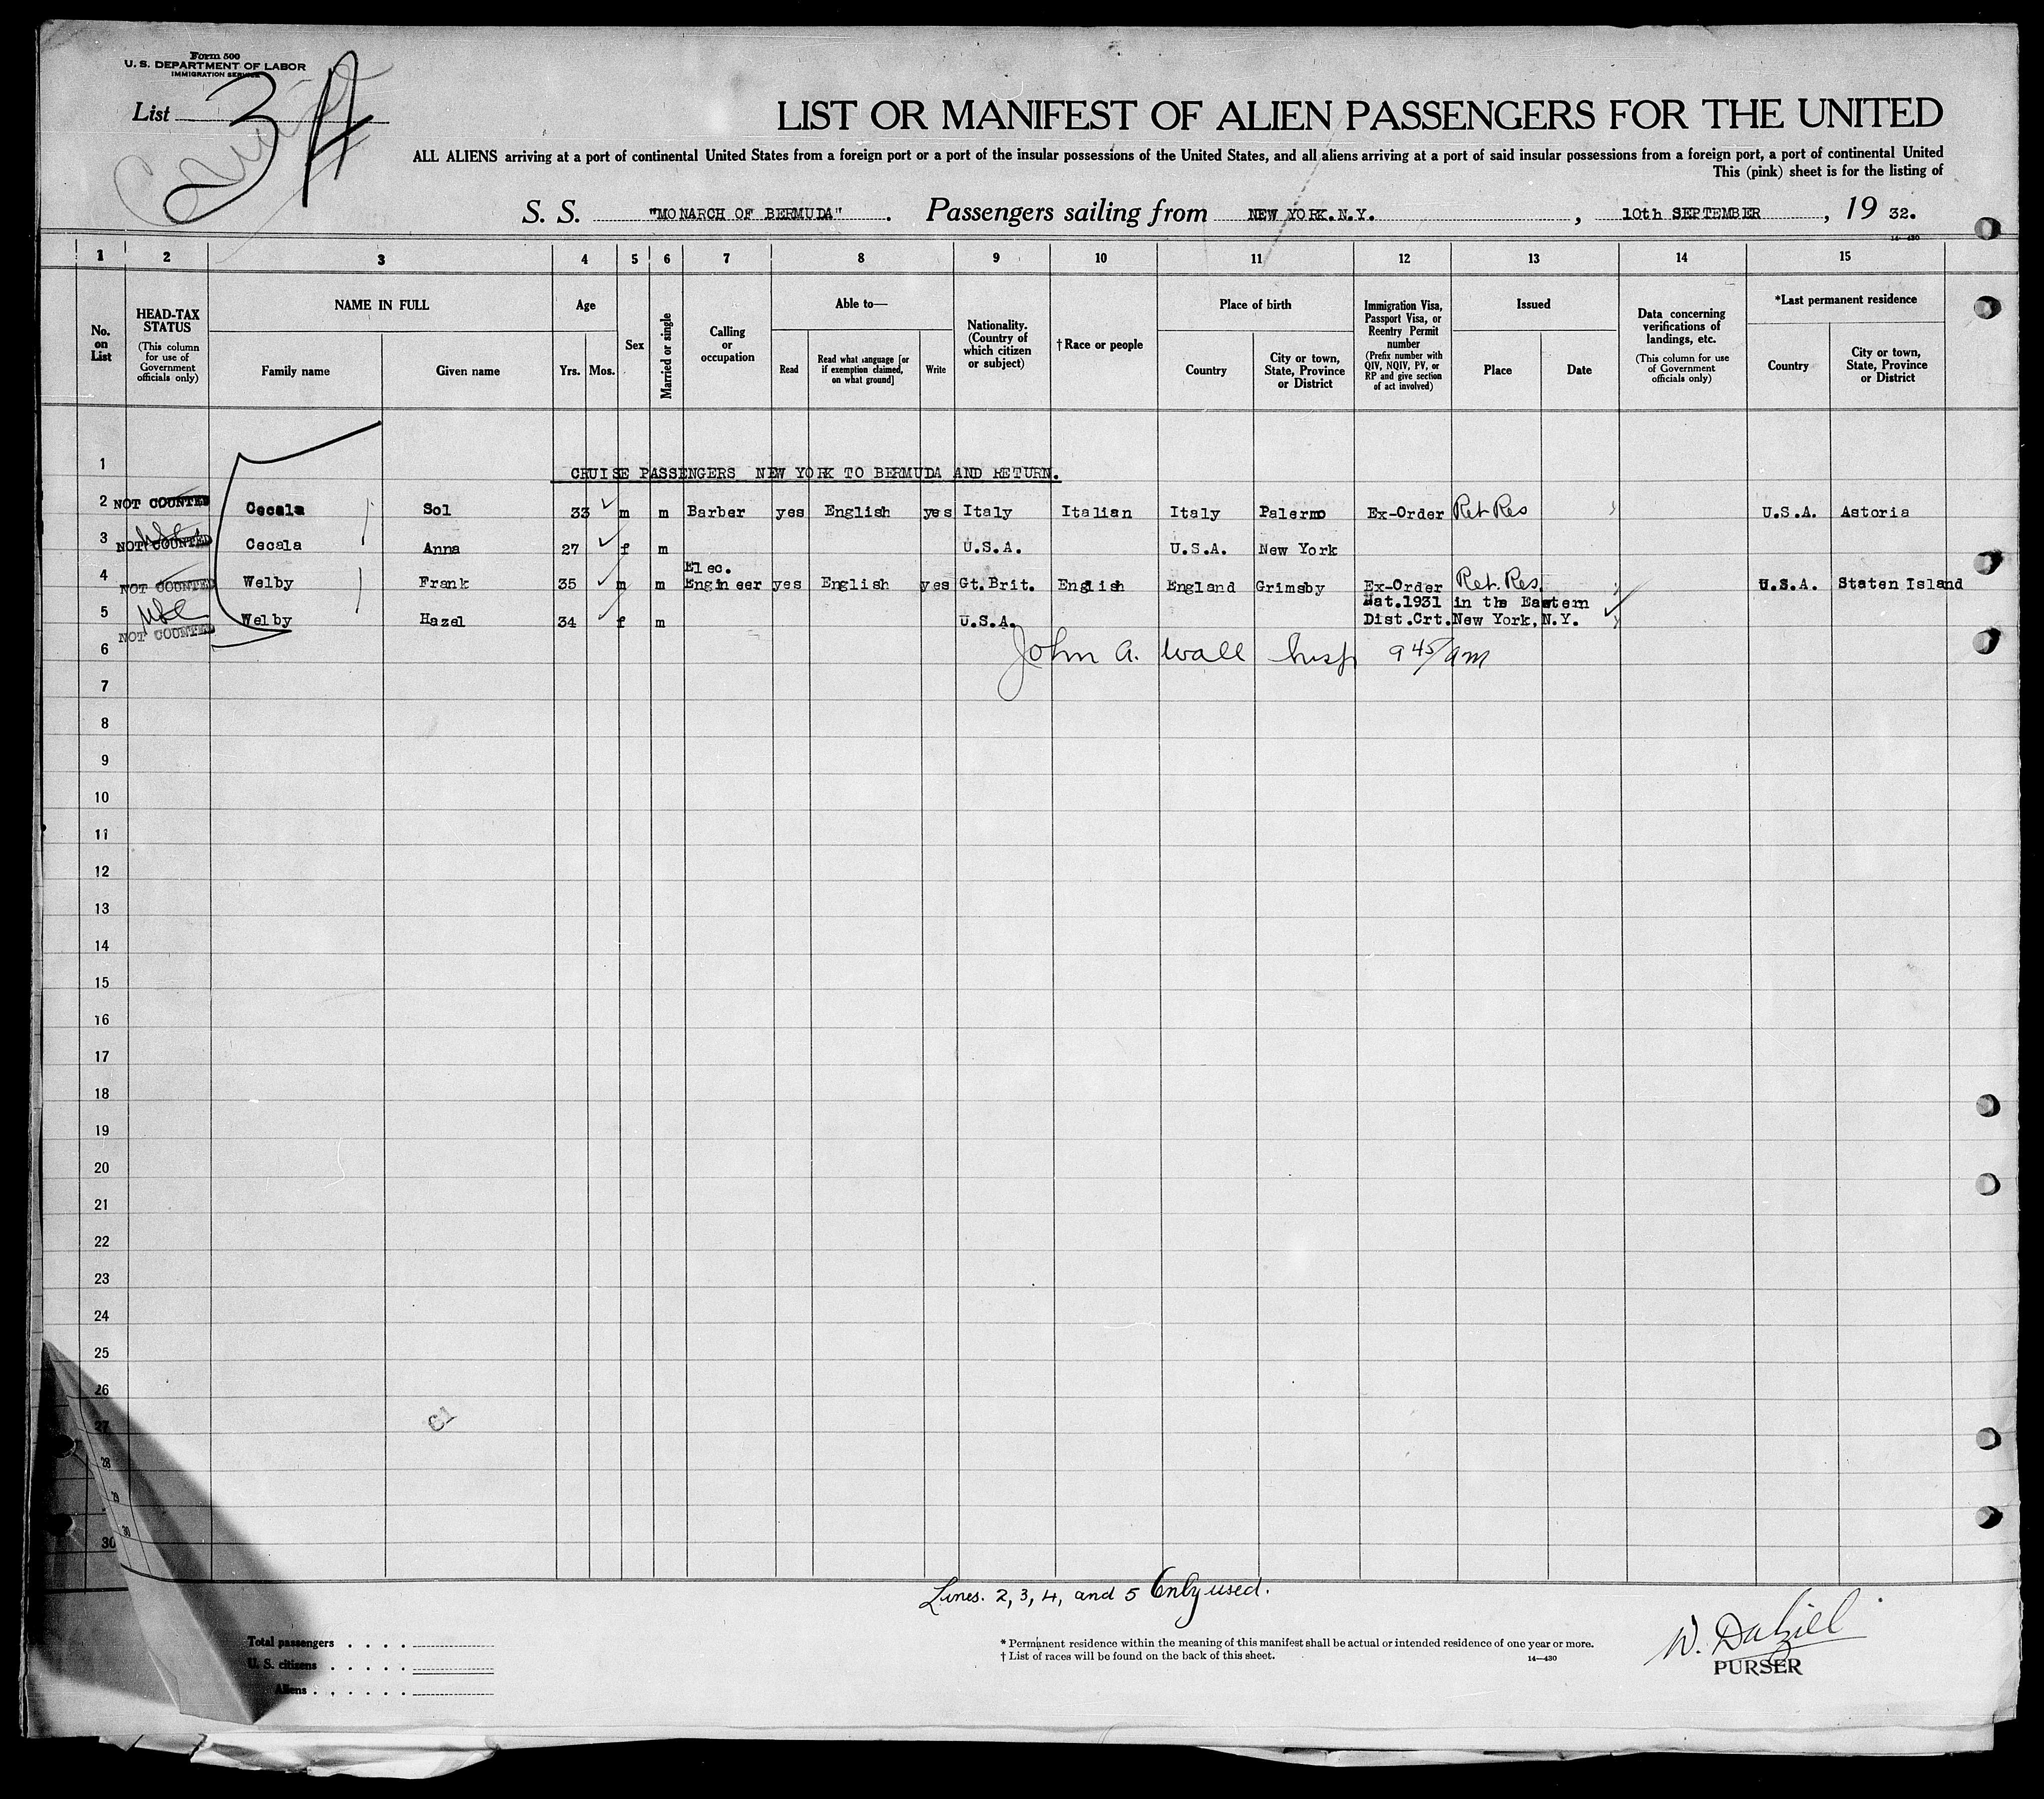 Form 500
U. S. DEPARTMENT OF LABOR
IMMIGRATION SERVICE
List 34
LIST OR MANIFEST OF ALIEN PASSENGERS FOR THE UNITED
ALL ALIENS arriving at a port of continental United States from a foreign port or a port of the insular possessions of the United States, and all aliens arriving at a port of said insular possessions from a foreign port, a port of continental United
This (pink) sheet is for the listing of
S. S. "MONARCH OF BERMUDA". Passengers sailing from NEW YORK.N.Y. , 10th SEPTEMBER , 19 32.
14-430
1 2 3 4 5 6 7 8 9 10 11 12 13 14 15
No. on List
HEAD-TAX STATUS (This column for use of Government officials only)
NAME IN FULL
Family name
Given name
Age
Yrs. Mos.
Sex
Married or single
Calling or occupation
Able to—
Read
Read what language [or if exemption claimed, on what ground]
Write
Nationality. (Country of which citizen or subject)
†Race or people
Place of birth
Country
City or town, State, Province or District
Immigration Visa, Passport Visa, or Reentry Permit number (Prefix number with QIV, NQIV, PV, or RP and give section of act involved)
Issued
Place
Date
Data concerning verifications of landings, etc. (This column for use of Government officials only)
*Last permanent residence
Country
City or town, State, Province or District
1 CRUISE PASSENGERS NEW YORK TO BERMUDA AND RETURN.
2 NOT COUNTED Cecala Sol 33 m m Barber yes English yes Italy Italian Italy Palermo Ex-Order Ret Res U.S.A. Astoria
3 NOT COUNTED Cecala Anna 27 f m U.S.A. U.S.A. New York
4 NOT COUNTED Welby Frank 35 m m Elec. Engineer yes English yes Gt.Brit. English England Grimsby Ex-Order Ret. Res. U.S.A. Staten Island
5 USC NOT COUNTED Welby Hazel 34 f m U.S.A. Nat.1931 in the Eastern Dist.Crt.New York,N.Y.
6 John A. Wall Insp 9 45/am
7
8
9
10
11
12
13
14
15
16
17
18
19
20
21
22
23
24
25
26
27
28
29
30
30
Lines. 2, 3, 4, and 5 Only used.
Total passengers . . . .
U. S. citizens . . . . .
Aliens . . . . . .
* Permanent residence within the meaning of this manifest shall be actual or intended residence of one year or more.
† List of races will be found on the back of this sheet.
14—430
W. Dalziell
PURSER